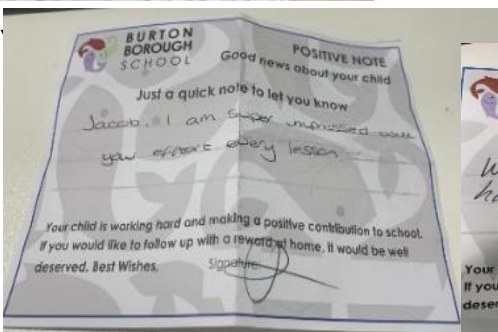 BURTON
BOROUGH
SCHOOL
POSITIVE NOTE
Good news about your child
Just a quick note to let you know
Jacob, I am super impressed with
your effort every lesson
Your child is working hard and making a positive contribution to school.
If you would like to follow up with a reward at home, it would be well
deserved. Best Wishes,
Signature
Your
If you
deser